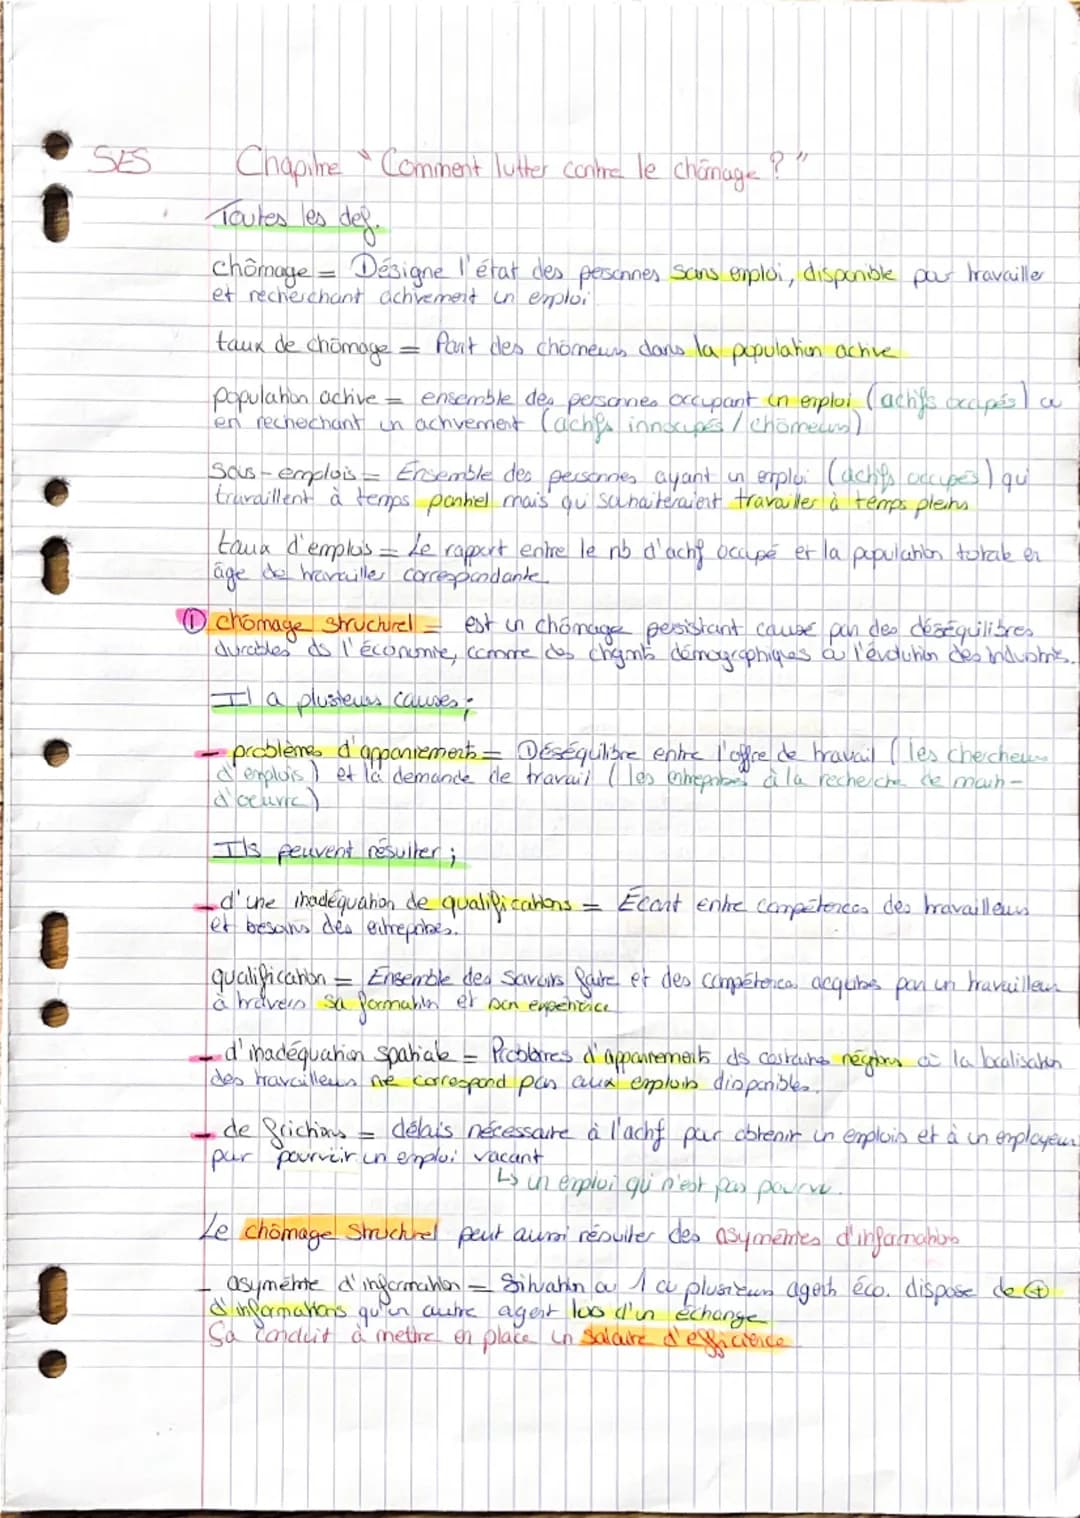 SES Chapitre "Comment lutter contre le chômage ?"
Toutes les def.
chômage = Désigne l'état des personnes sans emploi, disponible pour travailler
et recherchant activement un emploi
taux de chômage = Part des chômeurs dans la population active
population active = ensemble des personnes occupant un emploi (actifs occupés) ou
en recherchant un activement (actifs innocupés / chômeurs)
Sous-emplois = Ensemble des personnes ayant un emploi (actifs occupés) qui
travaillent à temps partiel mais qui souhaiteraient travailler à temps pleins
taux d'emplois = Le rapport entre le nb d'actif occupé et la population totale en
âge de travailler correspondante
① chômage structurel = est un chômage persistant causé par des déséquilibres
durables ds l'économie, comme des chgmts démographiques ou l'évolution des industries.
Il a plusieurs causes ;
- problèmes d'appariements = Déséquilibre entre l'offre de travail (les chercheurs
d'emplois) et la demande de travail (les entreprises à la recherche de main-
d'oeuvre)
Ils peuvent résulter ;
- d'une inadéquation de qualifications = Écart entre compétences des travailleurs
et besoins des entreprises.
qualification = Ensemble des savoirs faire et des compétences acquises par un travailleur
à travers sa formation et son expérience
- d'inadéquation spatiale = Problèmes d'appariements ds certains régions où la localisation
des travailleurs ne correspond pas aux emplois disponibles.
- de frictions = délais nécessaire à l'actif pour obtenir un emplois et à un employeur
pour pourvoir un emploi vacant
↳ un emploi qui n'est pas pourvu.
Le chômage structurel peut aussi résulter des asymétries d'informations
- asymétrie d'information = Situation où 1 ou plusieurs agents éco. dispose de ⊕
d'informations qu'un autre agent lors d'un échange
Sa conduit à mettre en place un salaire d'efficience